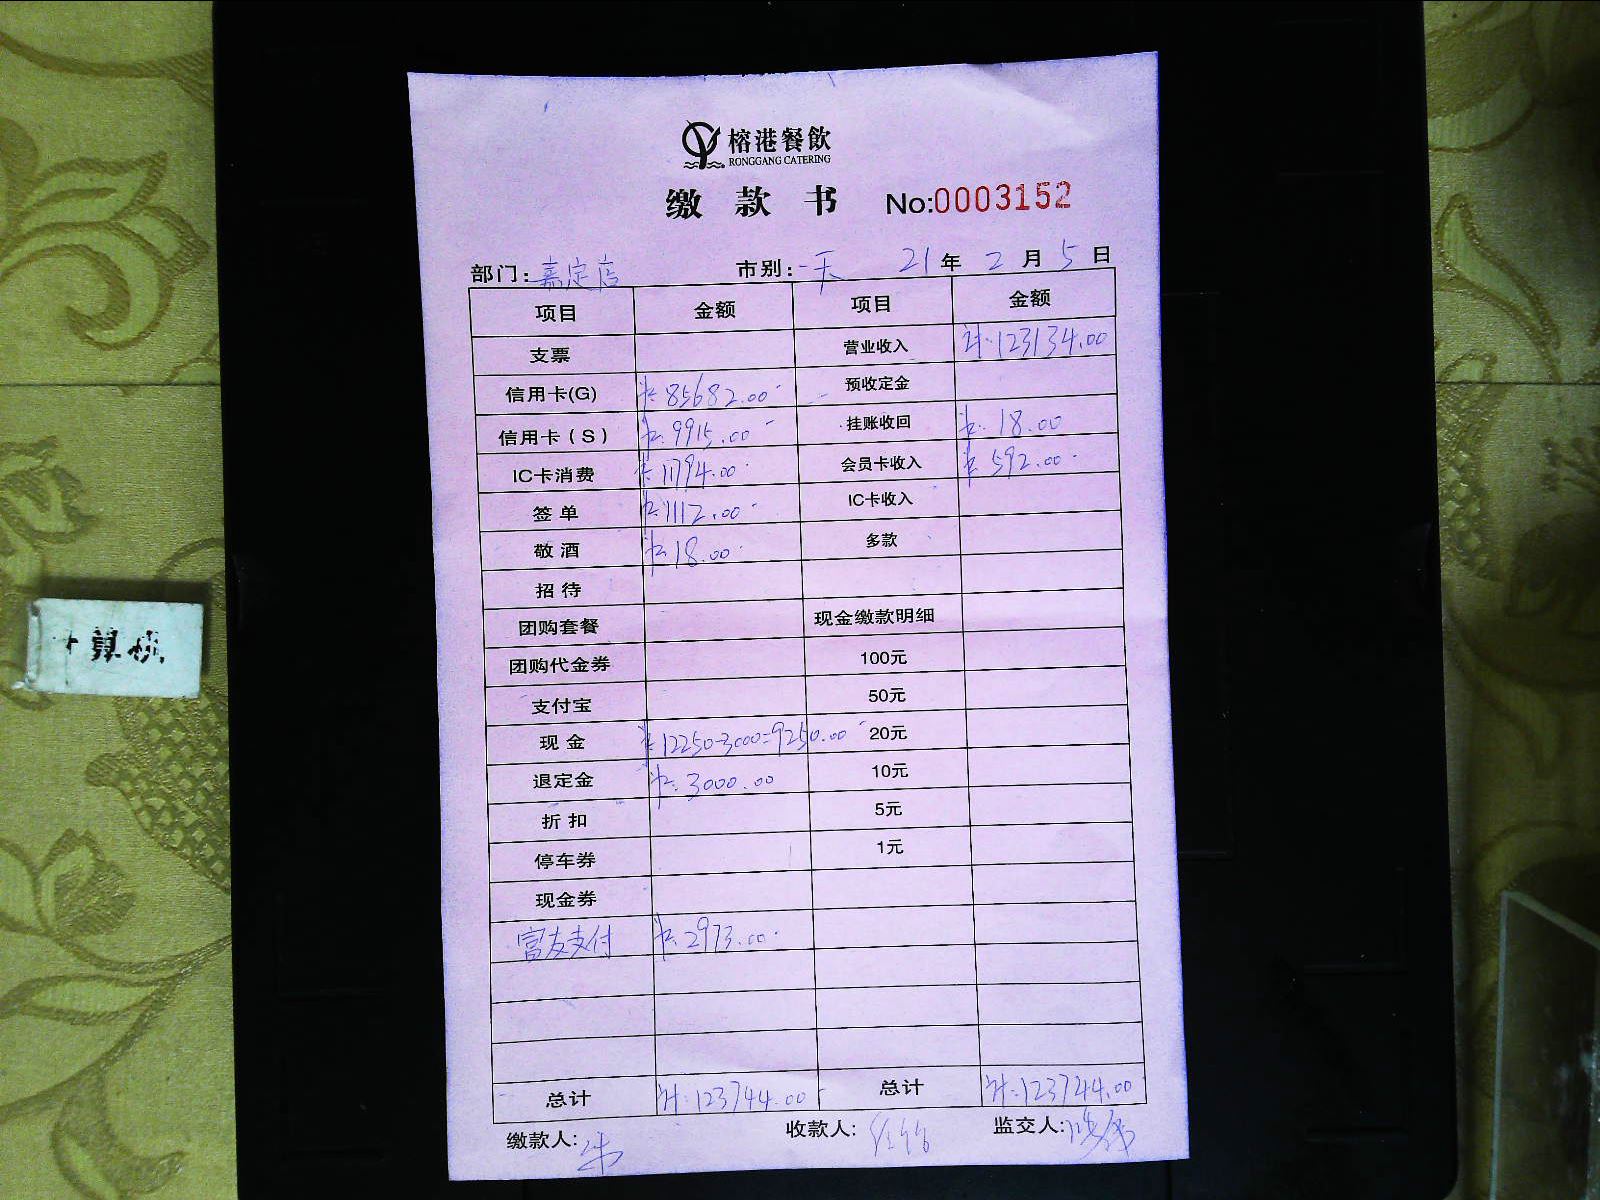 榕港餐飲
RONGGANG CATERING
缴款书 No:0003152
部门:嘉定店 市别:一天 21年2月5日
项目 金额 项目 金额
支票 营业收入 计:123134.00
信用卡(G) 卡:85682.00 预收定金
信用卡(S) 卡:9915.00 挂账收回 卡:18.00
IC卡消费 卡:11794.00 会员卡收入 卡:592.00
签单 卡:1112.00 IC卡收入
敬酒 卡:18.00 多款
招待
团购套餐 现金缴款明细
团购代金券 100元
支付宝 50元
现金 卡:12250-3000=9250.00 20元
退定金 卡:3000.00 10元
折扣 5元
停车券 1元
现金券
富友支付 卡:2973.00
总计 计:123744.00 总计 计:123744.00
缴款人:朱 收款人: 监交人:
计算机